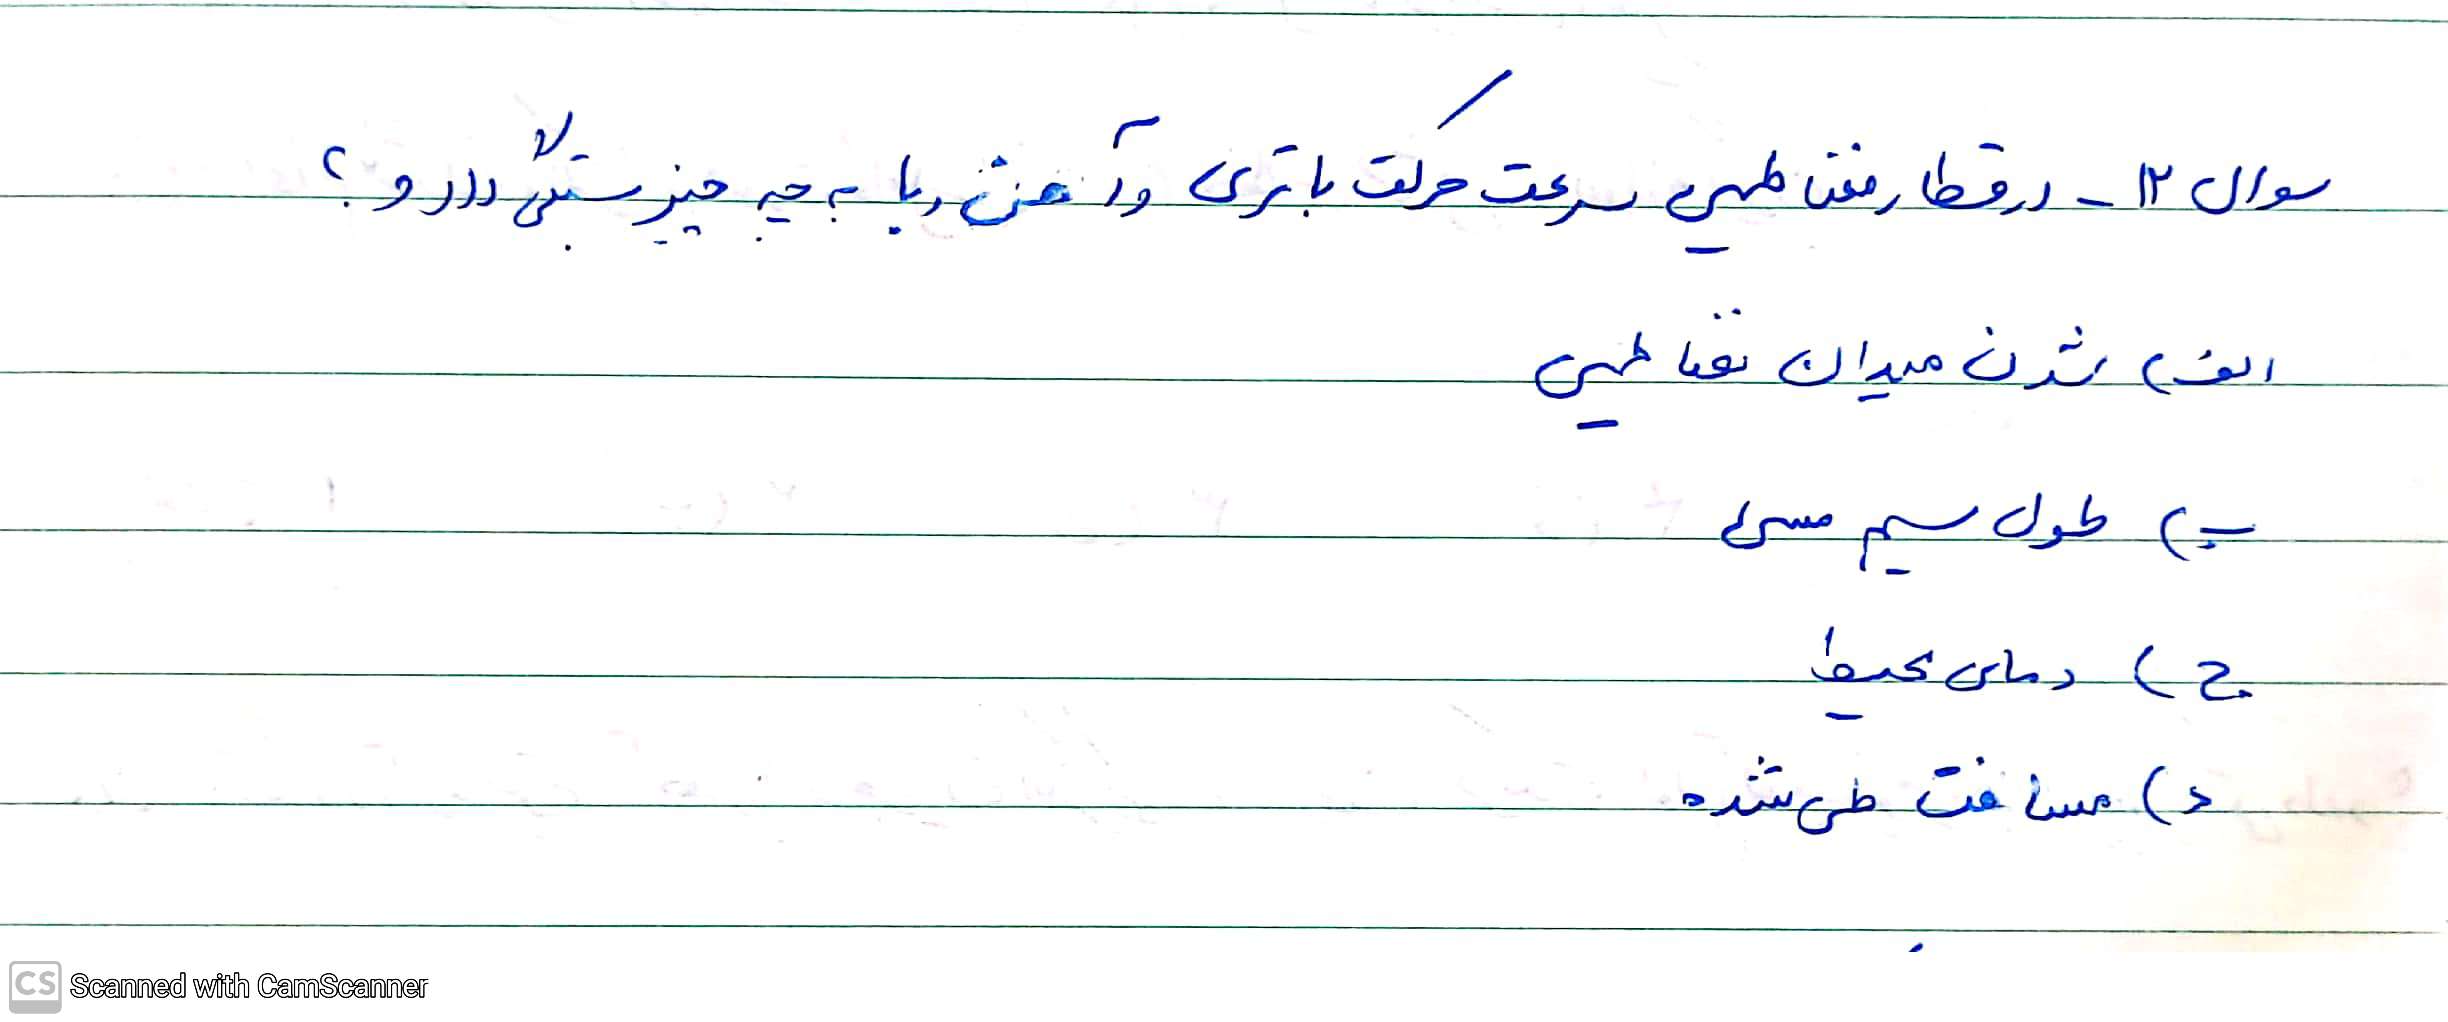 سوال ۱۲ - در قطار مغناطیسی سرعت حرکت باتری و آهنربا به چه چیز بستگی دارد؟
الف) شدت میدان مغناطیسی
ب) طول سیم مسی
ج) دمای محیط
د) مسافت طی شده
CS Scanned with CamScanner